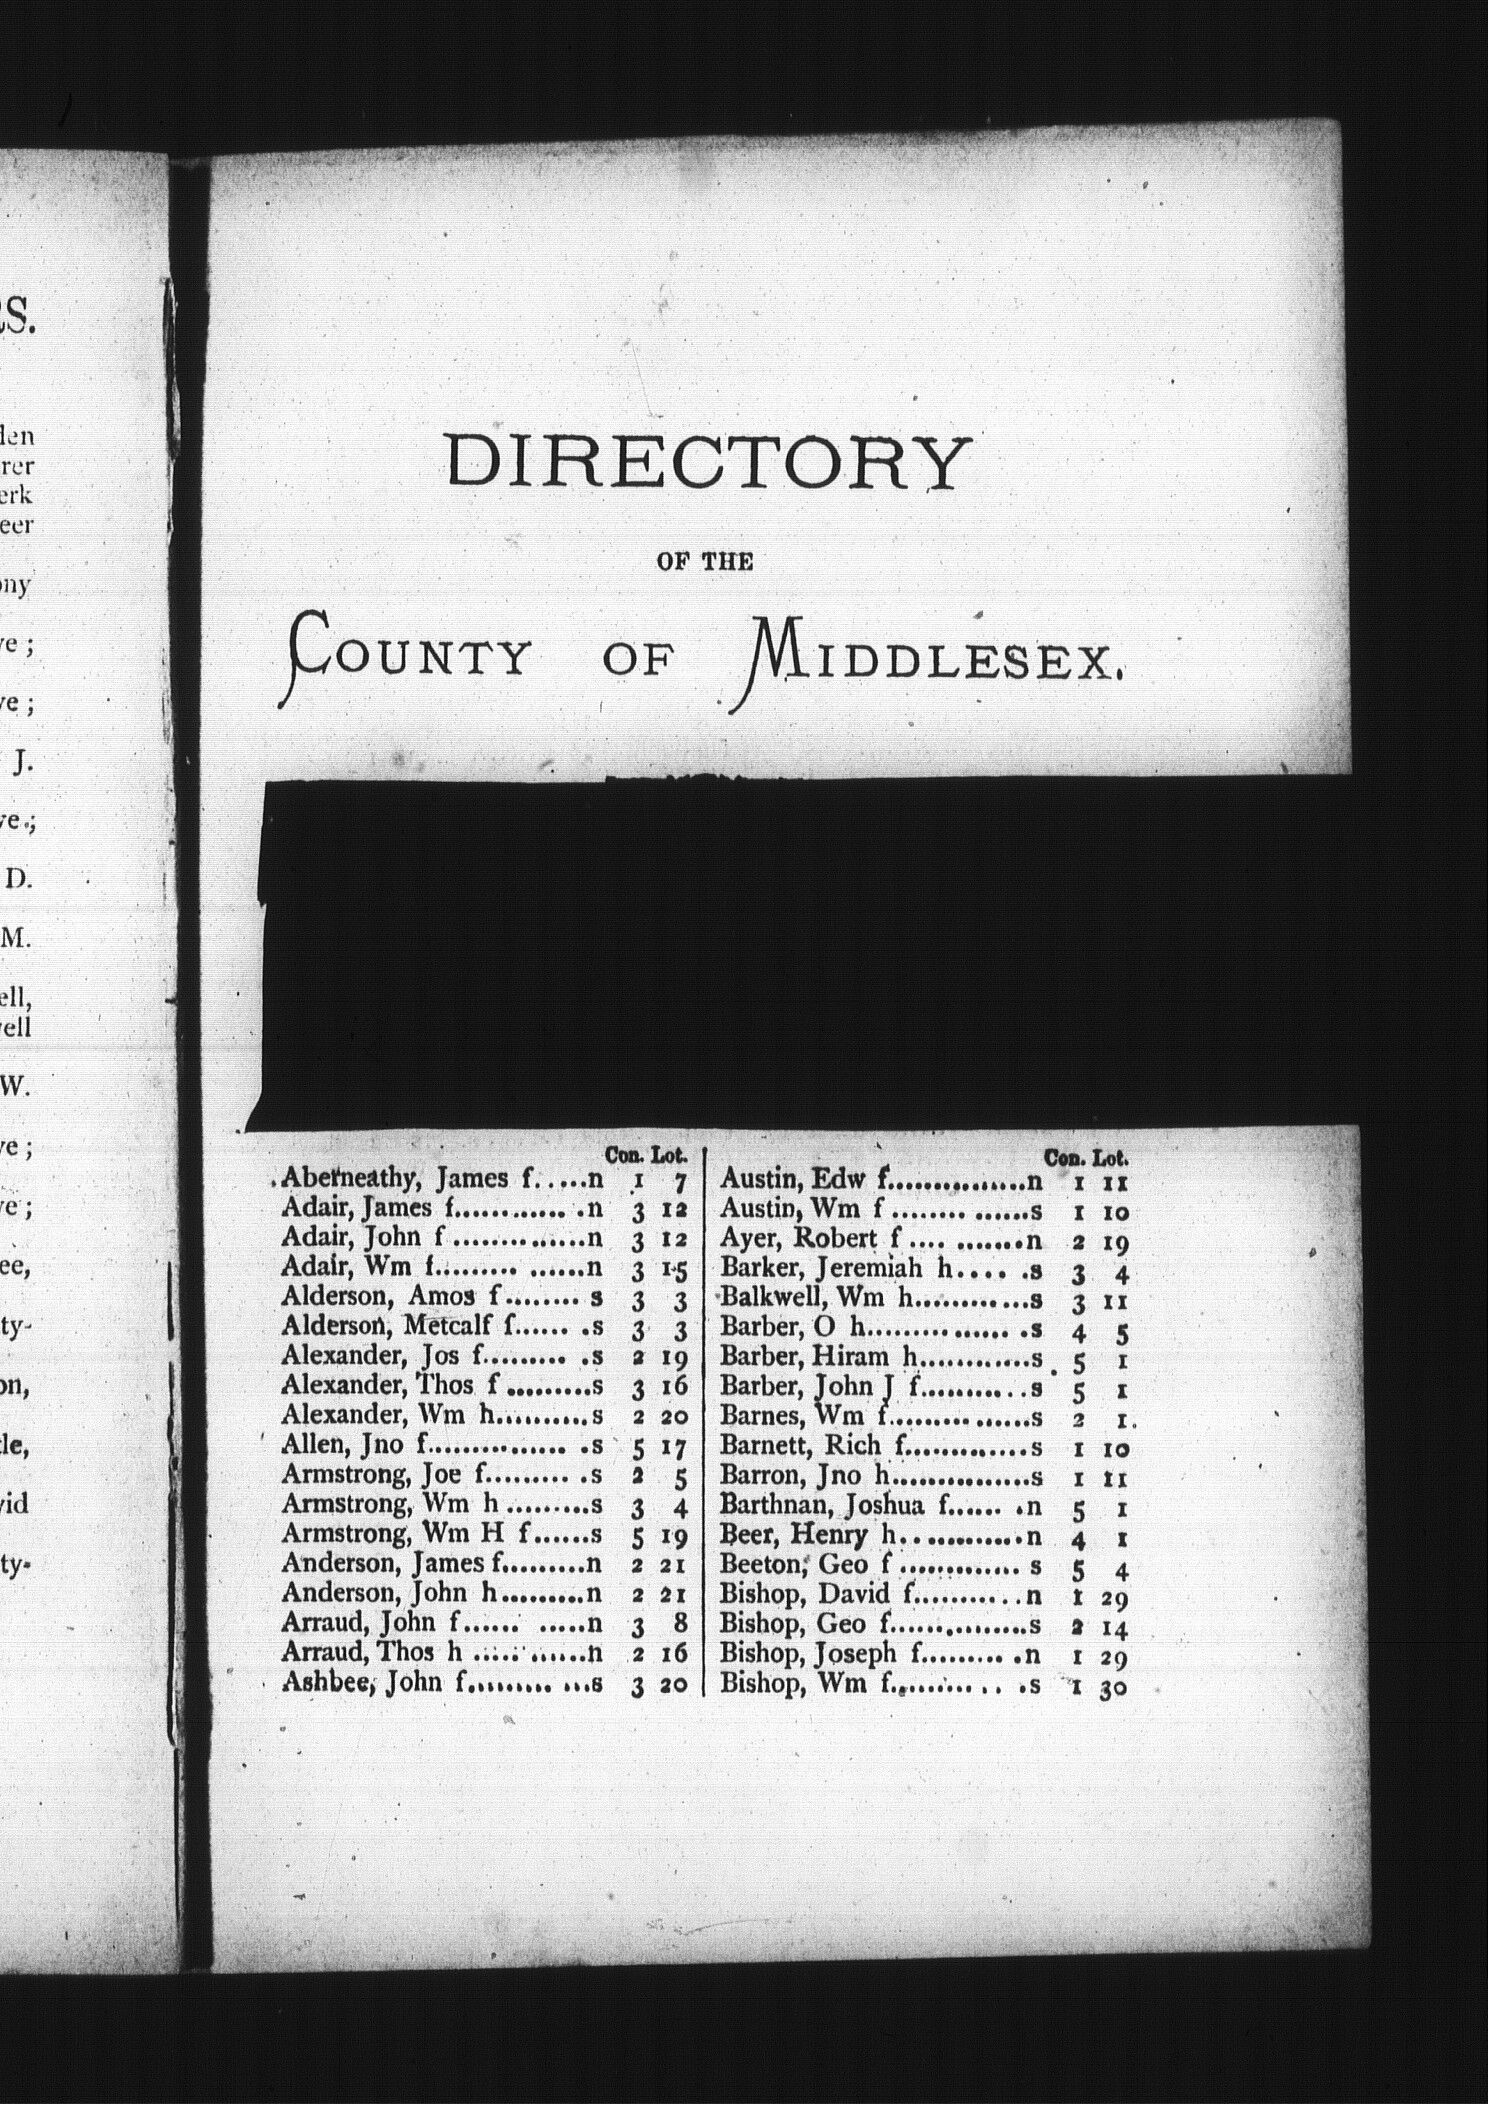 RS.
den
rer
erk
eer
ony
ve ;
ve ;
J.
ve ;
D.
M.
ell,
vell
W.
ve ;
ve ;
ee,
ty-
on,
tle,
vid
ty-
DIRECTORY
OF THE
COUNTY OF MIDDLESEX.
Con. Lot.
Aberneathy, James f......n 1 7
Adair, James f..............n 3 12
Adair, John f ...............n 3 12
Adair, Wm f............... n 3 15
Alderson, Amos f........ s 3 3
Alderson, Metcalf f...... .s 3 3
Alexander, Jos f......... .s 2 19
Alexander, Thos f .........s 3 16
Alexander, Wm h..........s 2 20
Allen, Jno f............... .s 5 17
Armstrong, Joe f......... .s 2 5
Armstrong, Wm h .........s 3 4
Armstrong, Wm H f......s 5 19
Anderson, James f.........n 2 21
Anderson, John h.........n 2 21
Arraud, John f...... .....n 3 8
Arraud, Thos h ............n 2 16
Ashbee, John f......... ...s 3 20
Con. Lot.
Austin, Edw f...............n 1 11
Austin, Wm f ........ ......s 1 10
Ayer, Robert f .... ........n 2 19
Barker, Jeremiah h.... .s 3 4
Balkwell, Wm h............s 3 11
Barber, O h............... .s 4 5
Barber, Hiram h............s 5 1
Barber, John J f........... .s 5 1
Barnes, Wm f......... ......s 2 1
Barnett, Rich f.............s 1 10
Barron, Jno h...............s 1 11
Barthnan, Joshua f...... .n 5 1
Beer, Henry h..............n 4 1
Beeton, Geo f ............. s 5 4
Bishop, David f........... .n 1 29
Bishop, Geo f...............s 2 14
Bishop, Joseph f......... .n 1 29
Bishop, Wm f......... .. .s 1 30